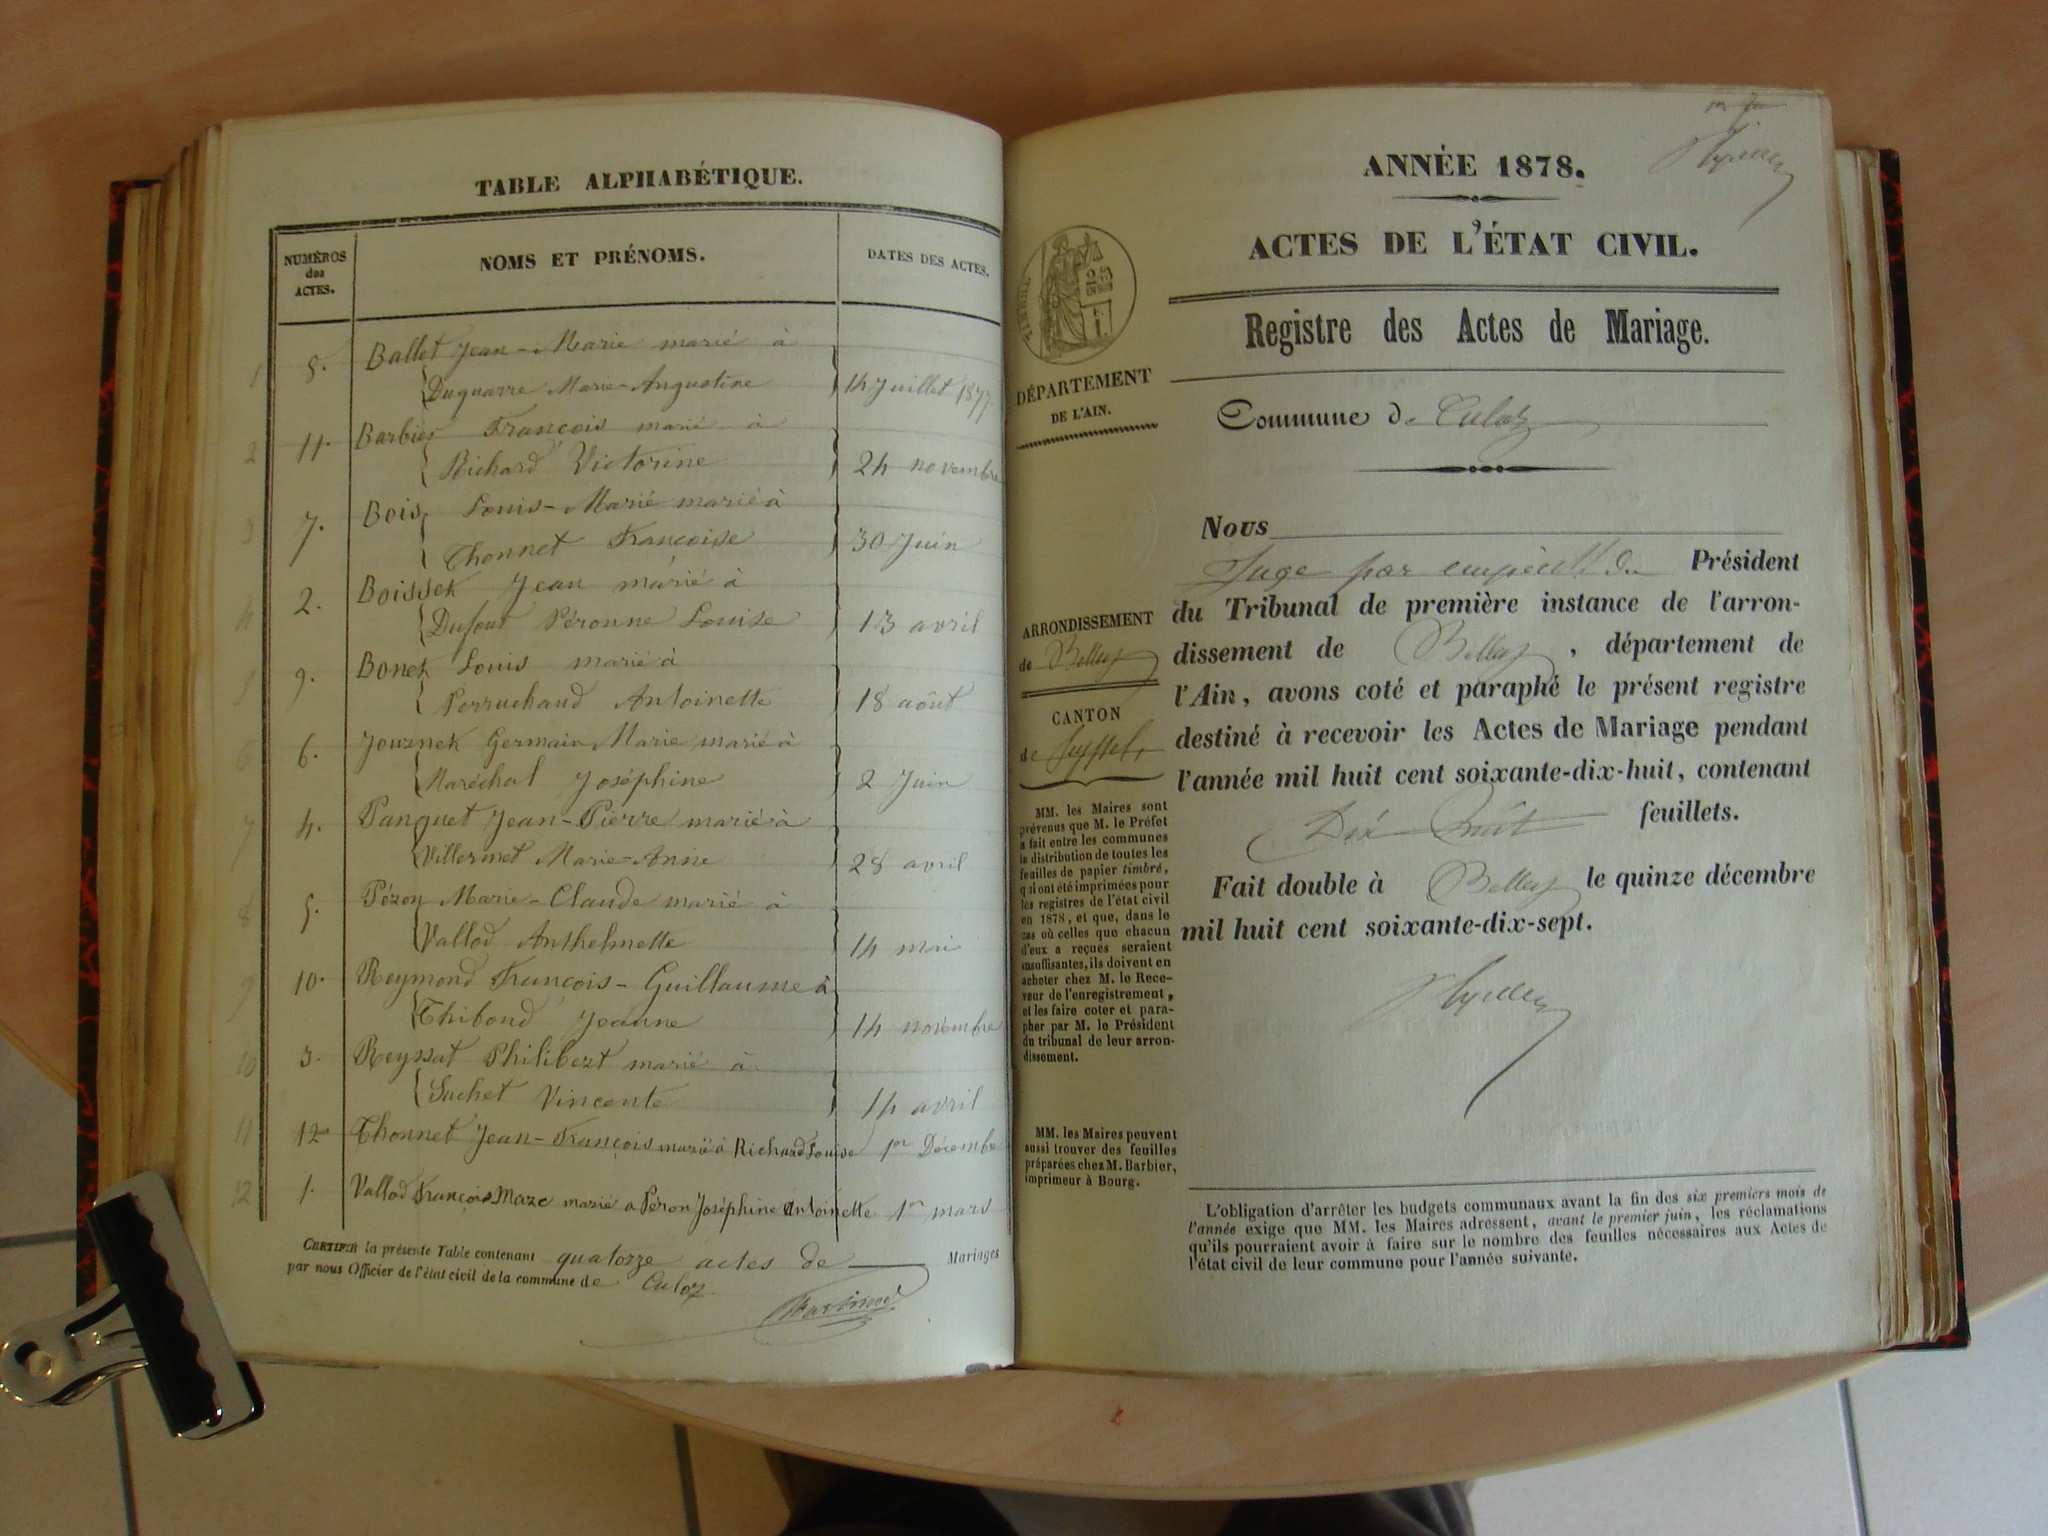 TABLE ALPHABÉTIQUE.
NUMÉROS des ACTES.
NOMS ET PRÉNOMS.
DATES DES ACTES.
1 8. Ballet Jean-Marie marié à
Duquarre Marie-Angustine 14 Juillet 1877.
2 11. Barbier François marié à
Richard Victorine 24 novembre
3 7. Bois Louis-Marie marié à
Thonnet Françoise 30 Juin
4 2. Boisset Jean marié à
Dufour Péronne Louise 13 avril
5 9. Bonet Louis marié à
Perruchaud Antoinette 18 août
6 6. Germain Marie marié à
Maréchal Joséphine 2 Juin
7 4. Panquet Jean-Pierre marié à
Villermet Marie-Anne 28 avril
8 5. Pézon Marie-Claude marié à
Vallod Anthelmette 14 mai
9 10. Reymond François-Guillaume à
Thibond Jeanne 14 novembre
10 3. Reyssat Philibert marié à
Suchet Vincente 14 avril
11 12 Thonnet Jean-François marié à Richard Louise 1er Décembe
12 1. Vallod François Maze marié a Péron Joséphine Antoinette 1er mars
CERTIFIÉ la présente Table contenant quatorze actes de Mariages
par nous Officier de l'état civil de la commune de Culoz
ANNÉE 1878.
ACTES DE L'ÉTAT CIVIL.
Registre des Actes de Mariage.
DÉPARTEMENT
DE L'AIN.
Commune de Culoz
Nous
Juge par empêcht du Président
du Tribunal de première instance de l'arron-
dissement de Belley, département de
l'Ain, avons coté et paraphé le présent registre
destiné à recevoir les Actes de Mariage pendant
l'année mil huit cent soixante-dix-huit, contenant
Dix-huit feuillets.
Fait double à Belley le quinze décembre
mil huit cent soixante-dix-sept.
ARRONDISSEMENT
de Belley
CANTON
de Seyssel
MM. les Maires sont
prévenus que M. le Préfet
a fait entre les communes
la distribution de toutes les
feuilles de papier timbré,
qui ont été imprimées pour
les registres de l'état civil
en 1878, et que, dans le
cas où celles que chacun
d'eux a reçues seraient
insuffisantes, ils doivent en
acheter chez M. le Rece-
veur de l'enregistrement,
et les faire coter et para-
pher par M. le Président
du tribunal de leur arron-
dissement.
MM. les Maires peuvent
aussi trouver des feuilles
préparées chez M. Barbier,
imprimeur à Bourg.
L'obligation d'arrêter les budgets communaux avant la fin des six premiers mois de
l'année exige que MM. les Maires adressent, avant le premier juin, les réclamations
qu'ils pourraient avoir à faire sur le nombre des feuilles nécessaires aux Actes de
l'état civil de leur commune pour l'année suivante.